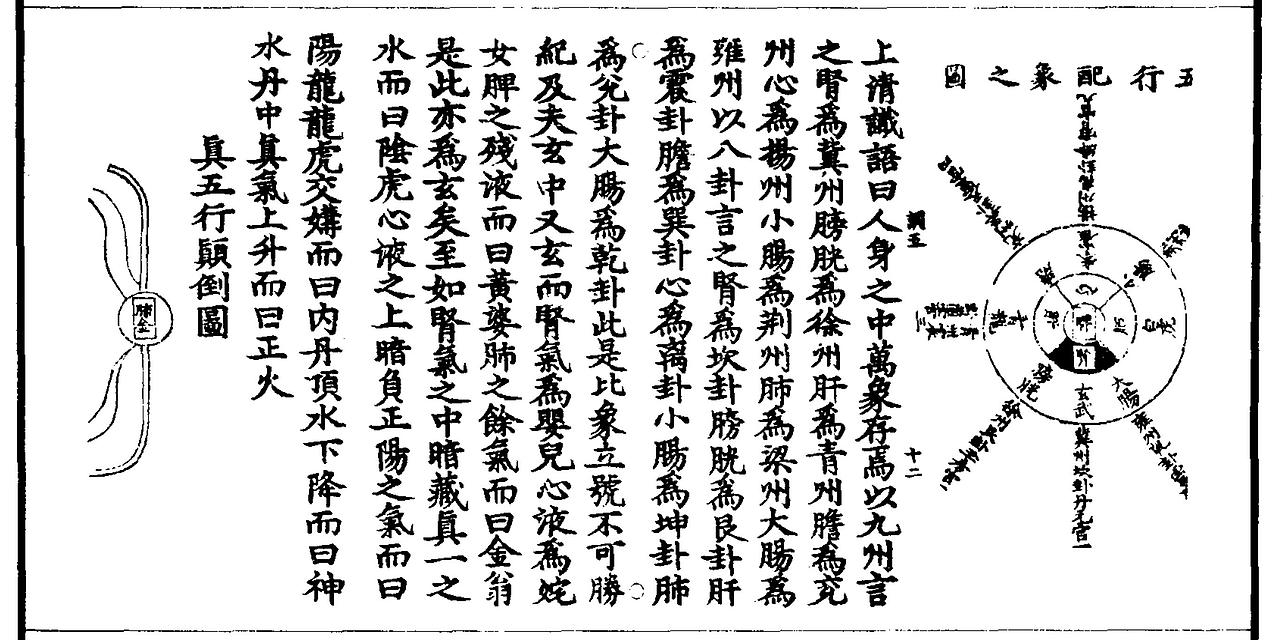 五行配象之圖
心
肝
肺
青龍
白虎
大腸
膀胱
玄武冀州坎卦丹元宮一
調五
十二
上清讖語曰人身之中萬象存焉以九州言
之腎爲冀州膀胱爲徐州肝爲青州膽爲兗
州心爲揚州小腸爲荆州肺爲梁州大腸爲
雍州以八卦言之腎爲坎卦膀胱爲艮卦肝
爲震卦膽爲巽卦心爲离卦小腸爲坤卦肺
爲兌卦大腸爲乾卦此是比象立號不可勝
紀及夫玄中又玄而腎氣爲嬰兒心液爲姹
女脾之殘液而曰黃婆肺之餘氣而曰金翁
是此亦爲玄矣至如腎氣之中暗藏眞一之
水而曰陰虎心液之上暗負正陽之氣而曰
陽龍龍虎交媾而曰内丹頂水下降而曰神
水丹中眞氣上升而曰正火
眞五行顚倒圖
肺金